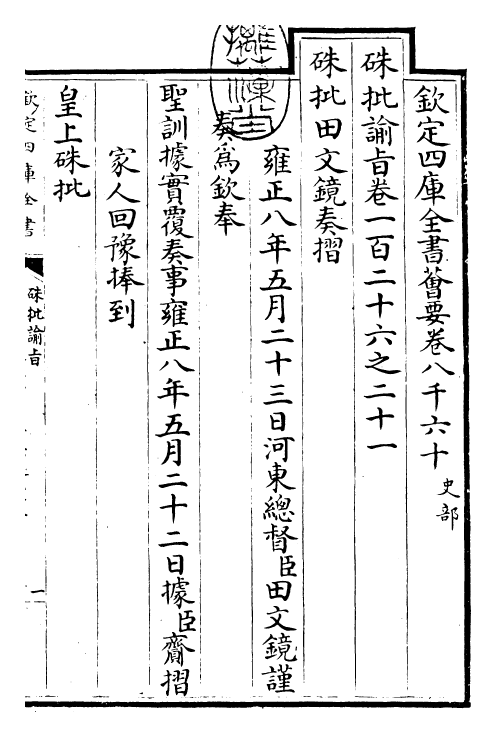 欽定四庫全書薈要卷八千六十 史部
硃批諭旨卷一百二十六之二十一
硃批田文鏡奏摺
雍正八年五月二十三日河東總督臣田文鏡謹
奏爲欽奉
聖訓據實覆奏事雍正八年五月二十二日據臣齎摺
家人回豫捧到
皇上硃批
欽定四庫全書
硃批諭旨
一